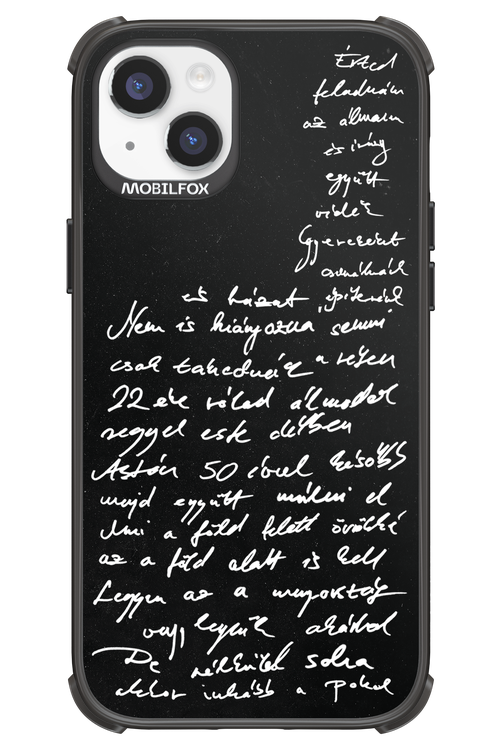 MOBILFOX
Érted
feladnám
az álmaim
és irány
együtt
vidék
Gyerekeket
csinálnánk
és házat építenénk
Nem is hiányozna semmi
csak
22 éve rólad álmodok
reggel este délben
Aztán 50 évvel később
majd együtt múlni el
Ami a föld felett örökké
az a föld alatt is kell
Legyen az a mennyország
vagy legyünk akárhol
De nélküled soha
akkor inkább a pokol